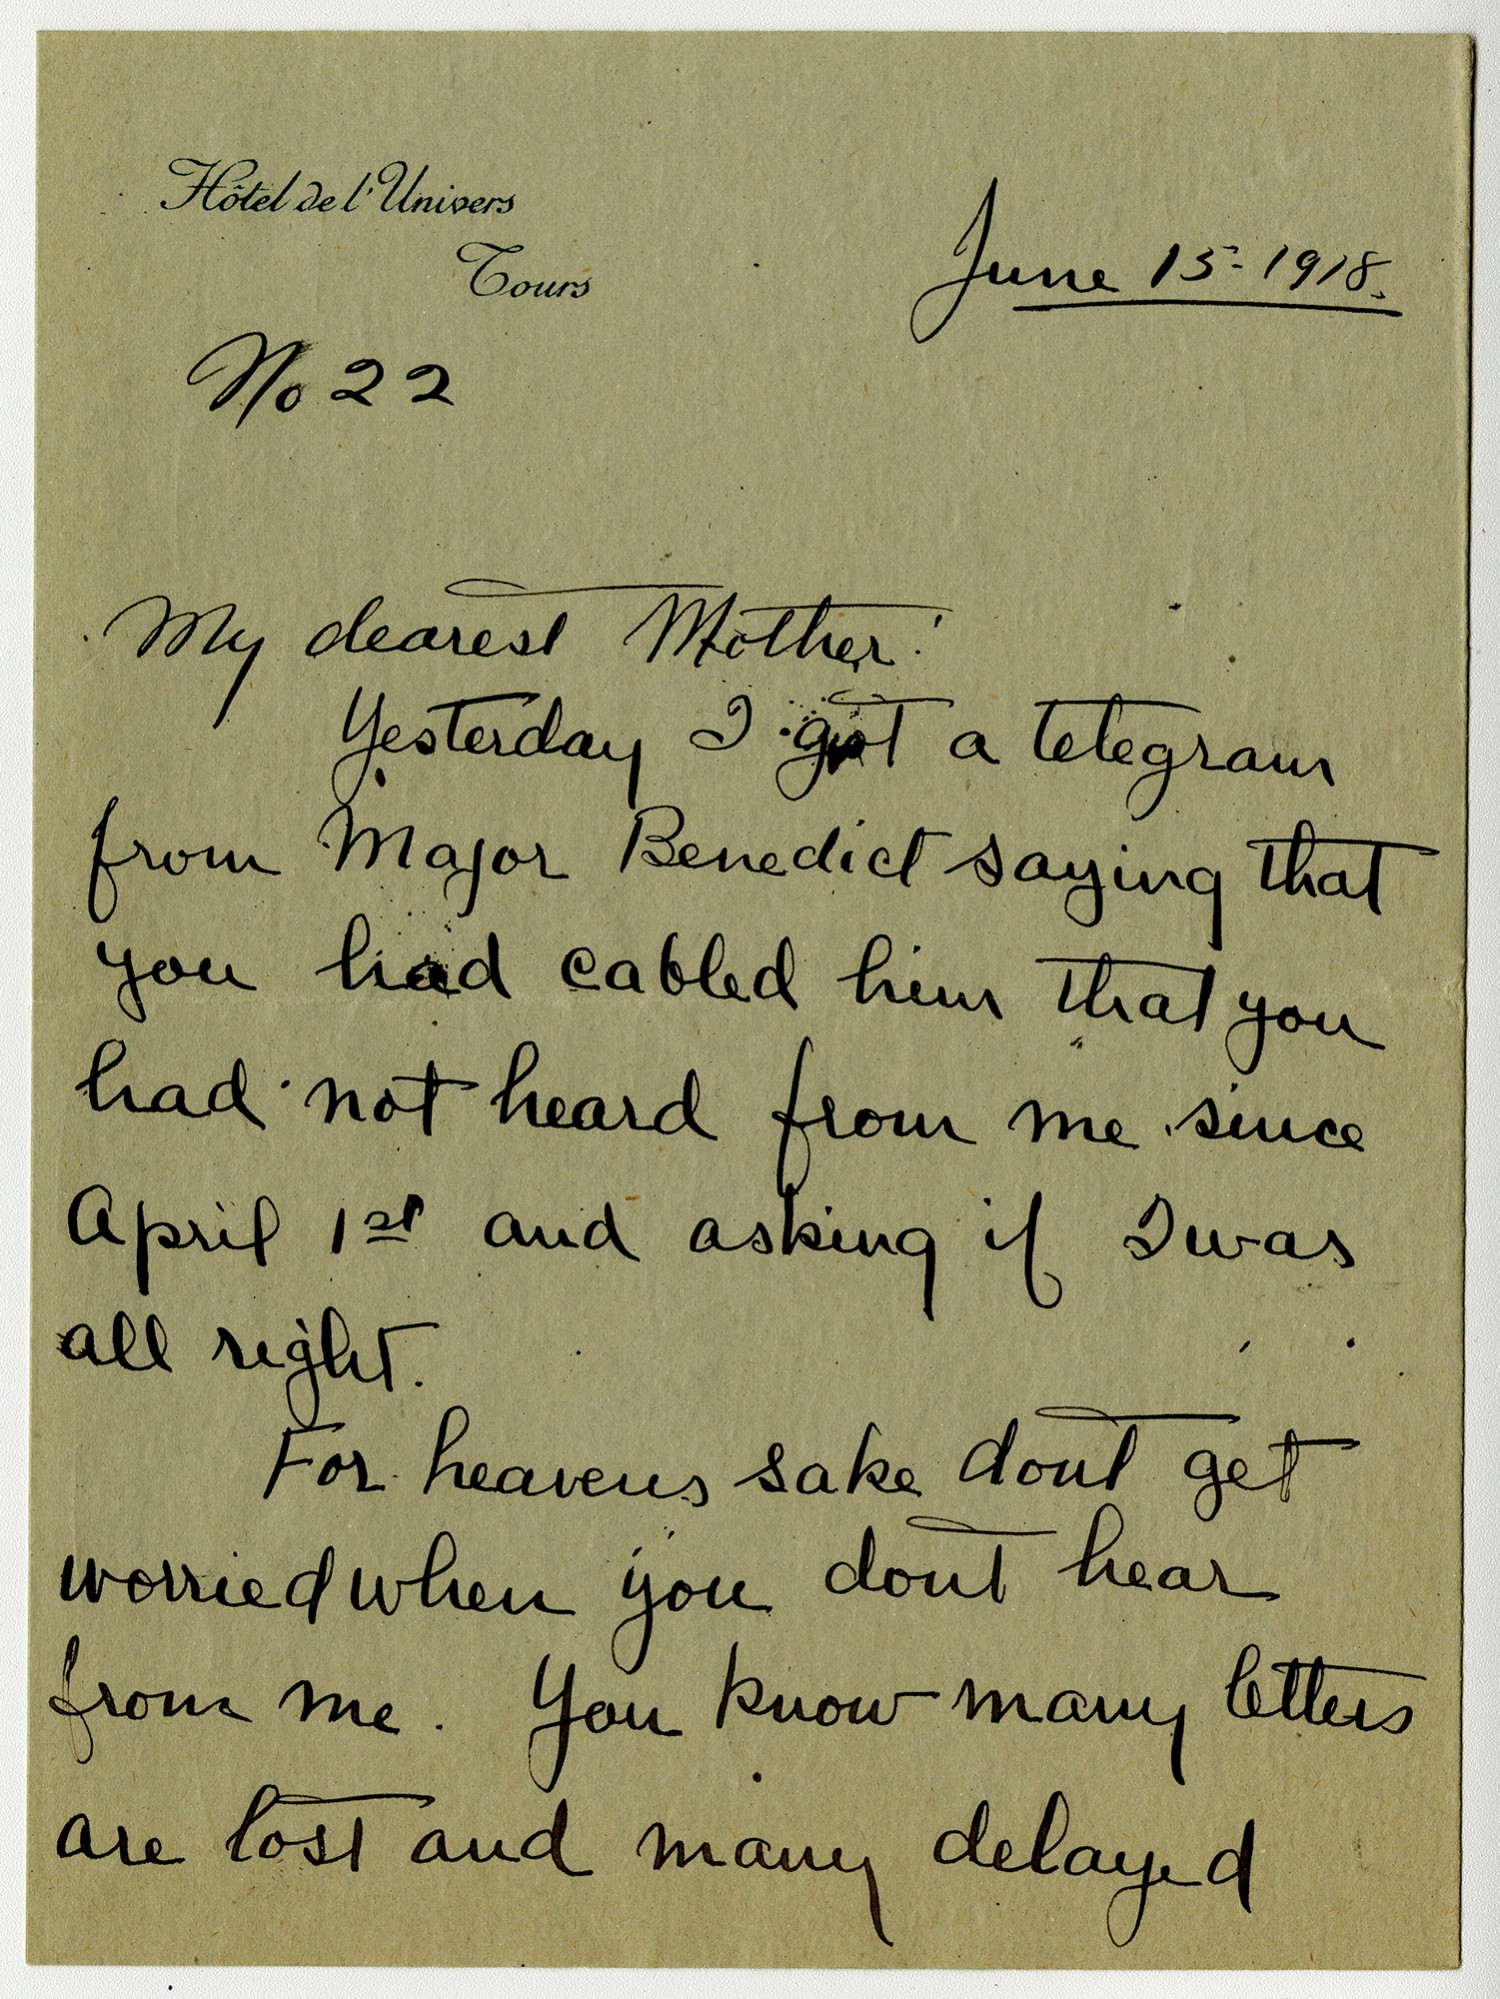 Hôtel de l'Univers
Tours
June 15-1918.
No 22
My dearest Mother:
Yesterday I got a telegram
from Major Benedict saying that
you had cabled him that you
had not heard from me since
April 1st and asking if I was
all right.
For heavens sake dont get
worried when you dont hear
from me. You know many letters
are lost and many delayed